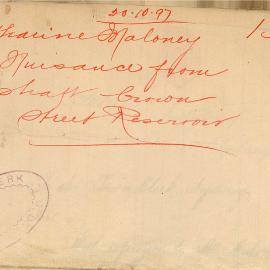 20.10.97
tharine Maloney
Nuisance from
shaft Crown
Street Reservoir
ERK